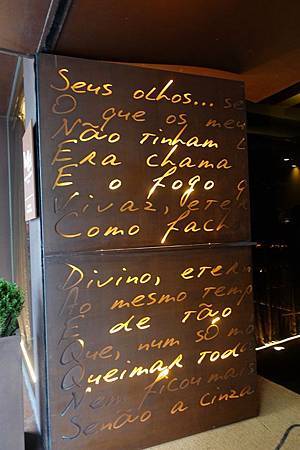 Seus olhos... se
O que os meu
Não tinham l
Era chama
E o fogo q
Vivaz, eter
Como fach
Divino, eter
Ao mesmo temp
E de tão
Que, num só mo
Queimar toda
Nem ficou mais
Senão a cinza